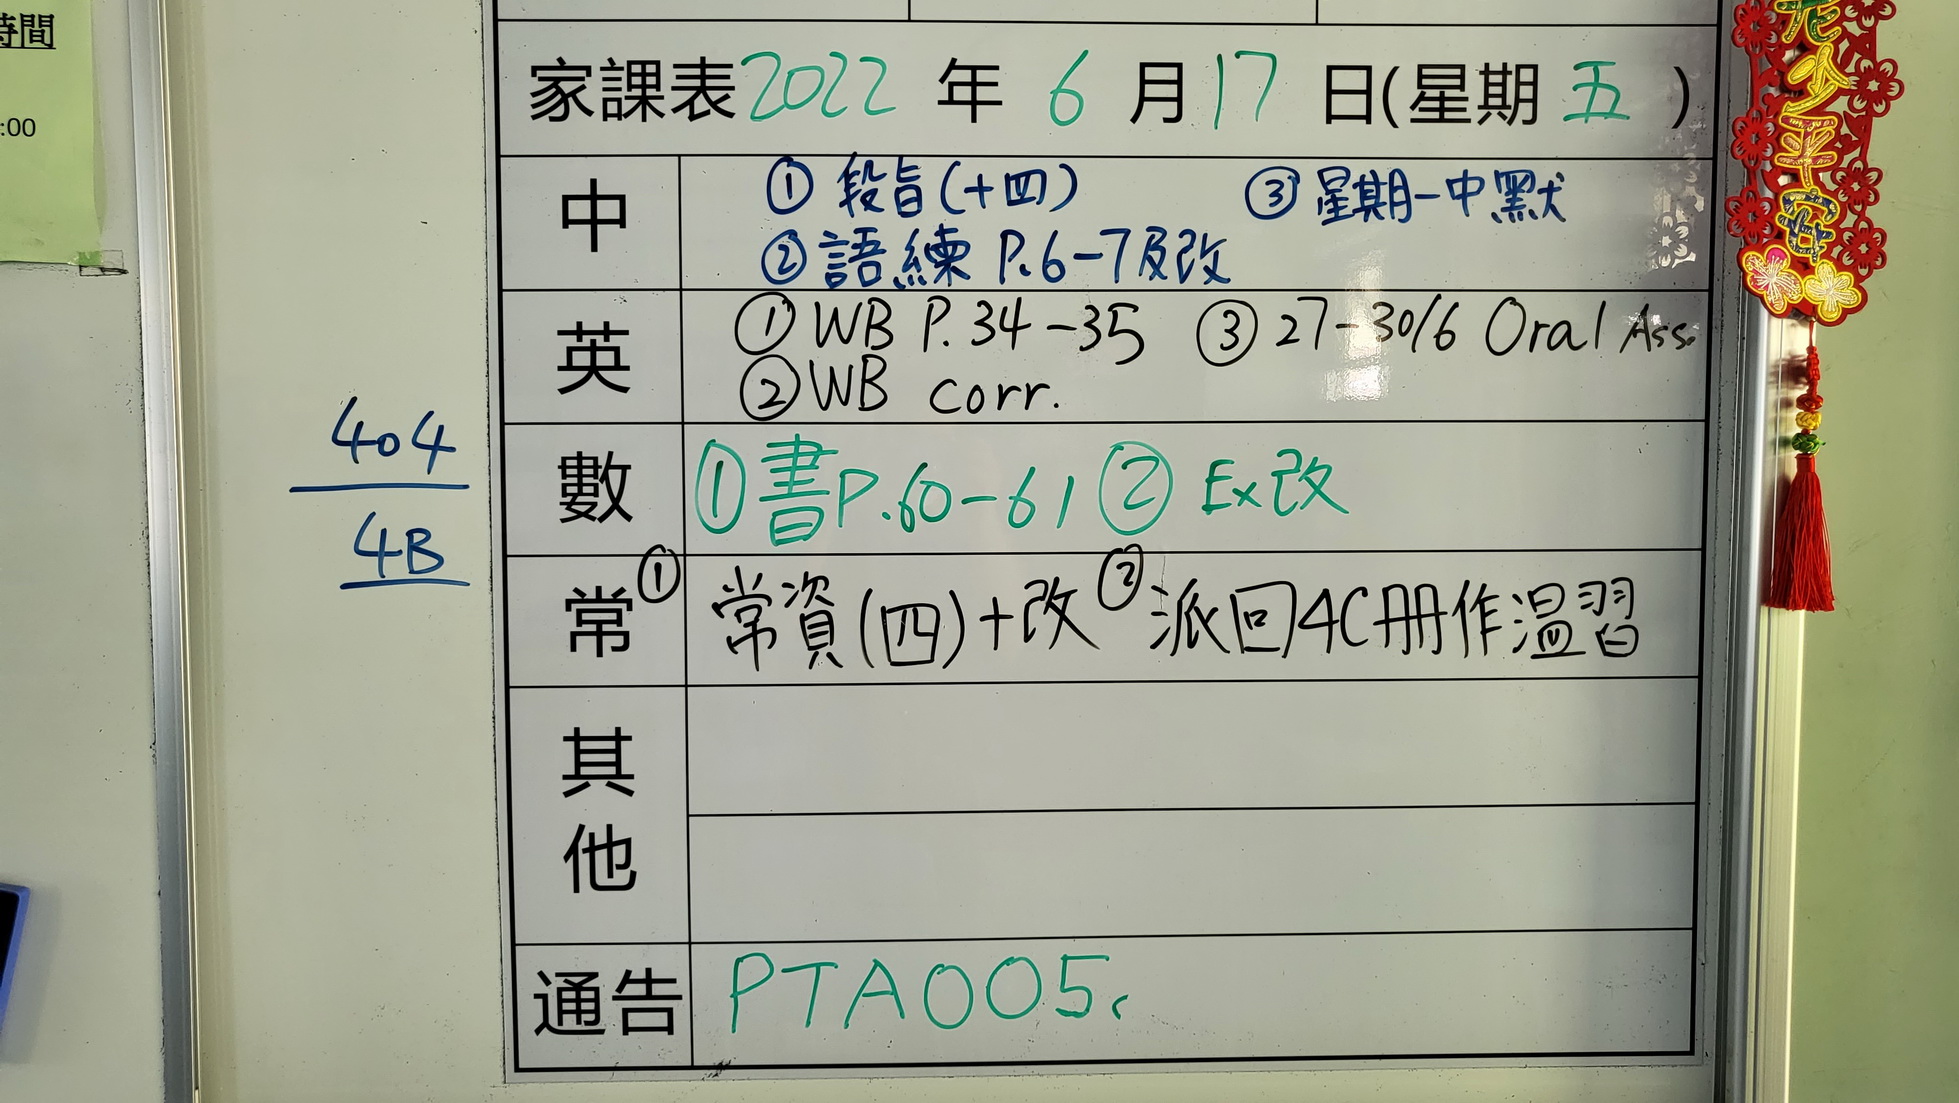 時間
:00
家課表2022年6月17日(星期五)
中
① 段旨(十四) ③ 星期一中默
② 語練 P.6-7及改
英
① WB P.34-35 ③ 27-30/6 Oral Ass.
② WB corr.
404
4B
數
① 書P.60-61 ② Ex改
常
① 常資(四)+改 ② 派回4C冊作溫習
其他
通告
PTA005.
老少平安